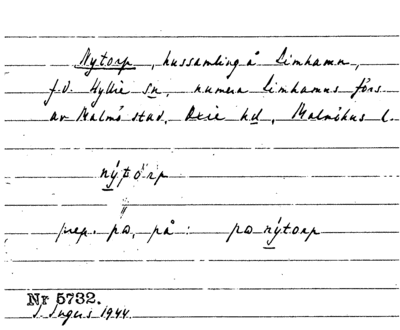 Nytorp, hussamling å Limhamn,
f.d. Hyllie sn, numera Limhamns förs.
av Malmö stad. Oxie hd, Malmöhus l.
nýtòrp
prep. pɷ, på: pɷ nýtorp
Nr 5732.
I. Ingers 1944